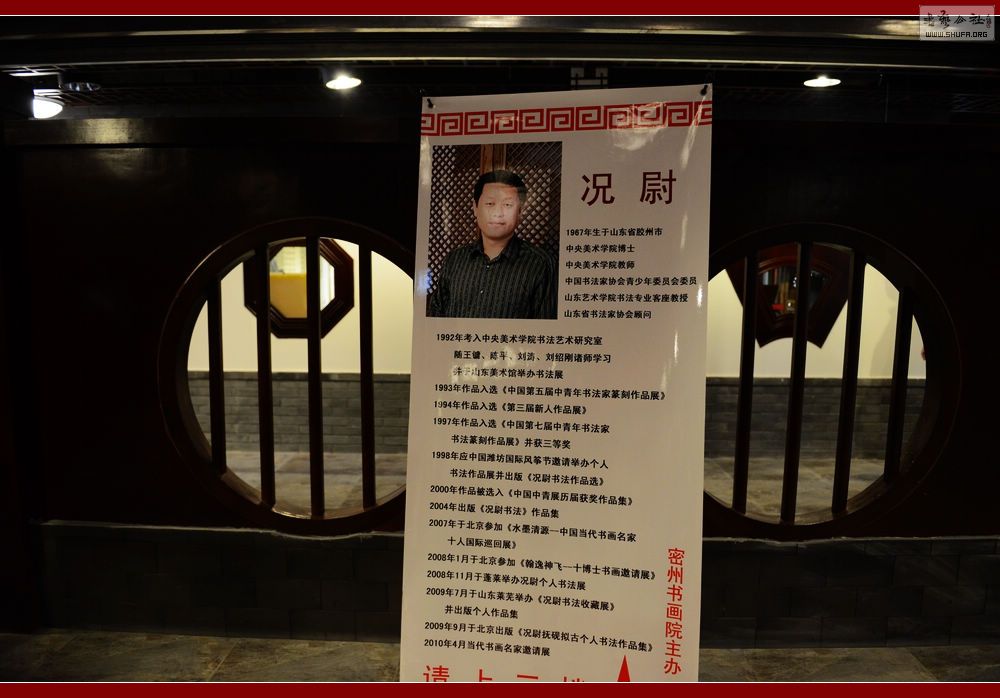 书艺公社
WWW.SHUFA.ORG
况 尉
1967年生于山东省胶州市
中央美术学院博士
中央美术学院教师
中国书法家协会青少年委员会委员
山东艺术学院书法专业客座教授
山东省书法家协会顾问
1992年考入中央美术学院书法艺术研究室
随王镛、陈平、刘涛、刘绍刚诸师学习
并于山东美术馆举办书法展
1993年作品入选《中国第五届中青年书法家篆刻作品展》
1994年作品入选《第三届新人作品展》
1997年作品入选《中国第七届中青年书法家
书法篆刻作品展》并获三等奖
1998年应中国潍坊国际风筝节邀请举办个人
书法作品展并出版《况尉书法作品选》
2000年作品被选入《中国中青展历届获奖作品集》
2004年出版《况尉书法》作品集
2007年于北京参加《水墨清源--中国当代书画名家
十人国际巡回展》
2008年1月于北京参加《翰逸神飞--十博士书画邀请展》
2008年11月于蓬莱举办况尉个人书法展
2009年7月于山东莱芜举办《况尉书法收藏展》
并出版个人作品集
2009年9月于北京出版《况尉抚砚拟古个人书法作品集》
2010年4月当代书画名家邀请展
密州书画院主办
请上三楼